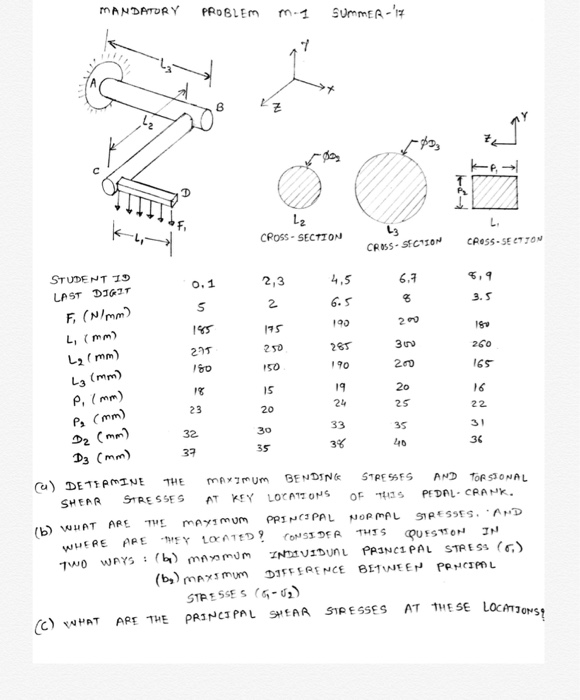 MANDATORY PROBLEM M-1 SUMMER-'17
L3
A
B
L2
C
D
F1
L1
Y
X
Z
ØD2
L2
CROSS-SECTION
ØD3
L3
CROSS-SECTION
Y
Z
P1
P2
L1
CROSS-SECTION
STUDENT ID LAST DIGIT 0,1 2,3 4,5 6,7 8,9
F1 (N/mm) 5 2 6.5 8 3.5
L1 (mm) 185 175 190 200 180
L2 (mm) 275 250 285 300 260
L3 (mm) 180 150 190 200 165
P1 (mm) 18 15 19 20 16
P2 (mm) 23 20 24 25 22
D2 (mm) 32 30 33 35 31
D3 (mm) 37 35 38 40 36
(a) DETERMINE THE MAXIMUM BENDING STRESSES AND TORSIONAL
SHEAR STRESSES AT KEY LOCATIONS OF THIS PEDAL-CRANK.
(b) WHAT ARE THE MAXIMUM PRINCIPAL NORMAL STRESSES. AND
WHERE ARE THEY LOCATED? CONSIDER THIS QUESTION IN
TWO WAYS: (b1) MAXIMUM INDIVIDUAL PRINCIPAL STRESS (σ1)
(b2) MAXIMUM DIFFERENCE BETWEEN PRNCIPAL
STRESSES (σ1-σ2)
(C) WHAT ARE THE PRINCIPAL SHEAR STRESSES AT THESE LOCATIONS?